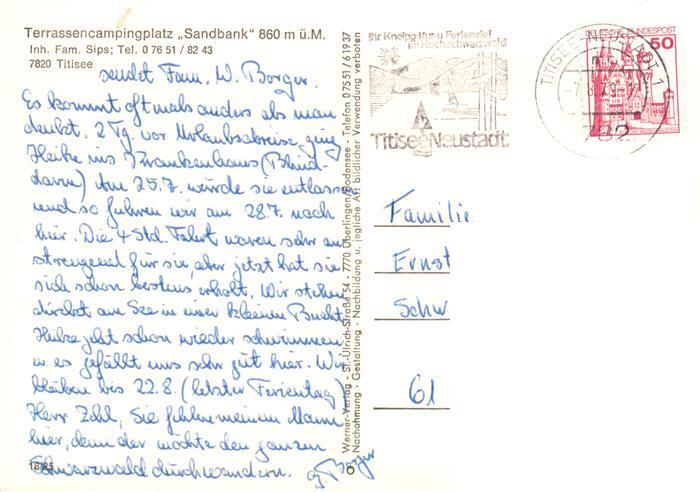 Terrassencampingplatz „Sandbank“ 860 m ü.M.
Inh. Fam. Sips; Tel. 0 76 51 / 82 43
7820 Titisee
sendet Fam. W. Borger.
Es kommt oftmals anders als man
denkt. 2 Tg. vor Urlaubsabreise ging
Heike ins Krankenhaus (Blind-
darm) Am 25.7. wurde sie entlassen
und so fuhren wir am 28.7. nach
hier. Die 4 Std. Fahrt waren sehr an
strengend für sie, aber jetzt hat sie
sich schon bestens erholt. Wir stehen
direkt am See in einer kleinen Bucht
Heike geht schon wieder schwimmen
es gefällt uns sehr gut hier. Wir
bleiben bis 22.8. (letzter Ferientag)
Herr Zahl, Sie fehlen meinem Mann
hier, denn der möchte den ganzen
Schwarzwald durchwandern.
Borger
Werner-Verlag - St.-Ulrich-Straße 54 - 7770 Überlingen/Bodensee - Telefon 07551/61937
Nachahmung - Gestaltung - Nachbildung u. jegliche Art bildlicher Verwendung verboten
Ihr Kneipp-Kur-u. Ferienziel
im Hochschwarzwald
Titisee Neustadt
TITISEE-NEUSTADT 1
782
DEUTSCHE BUNDESPOST
50
Familie
Ernst
Schw
61